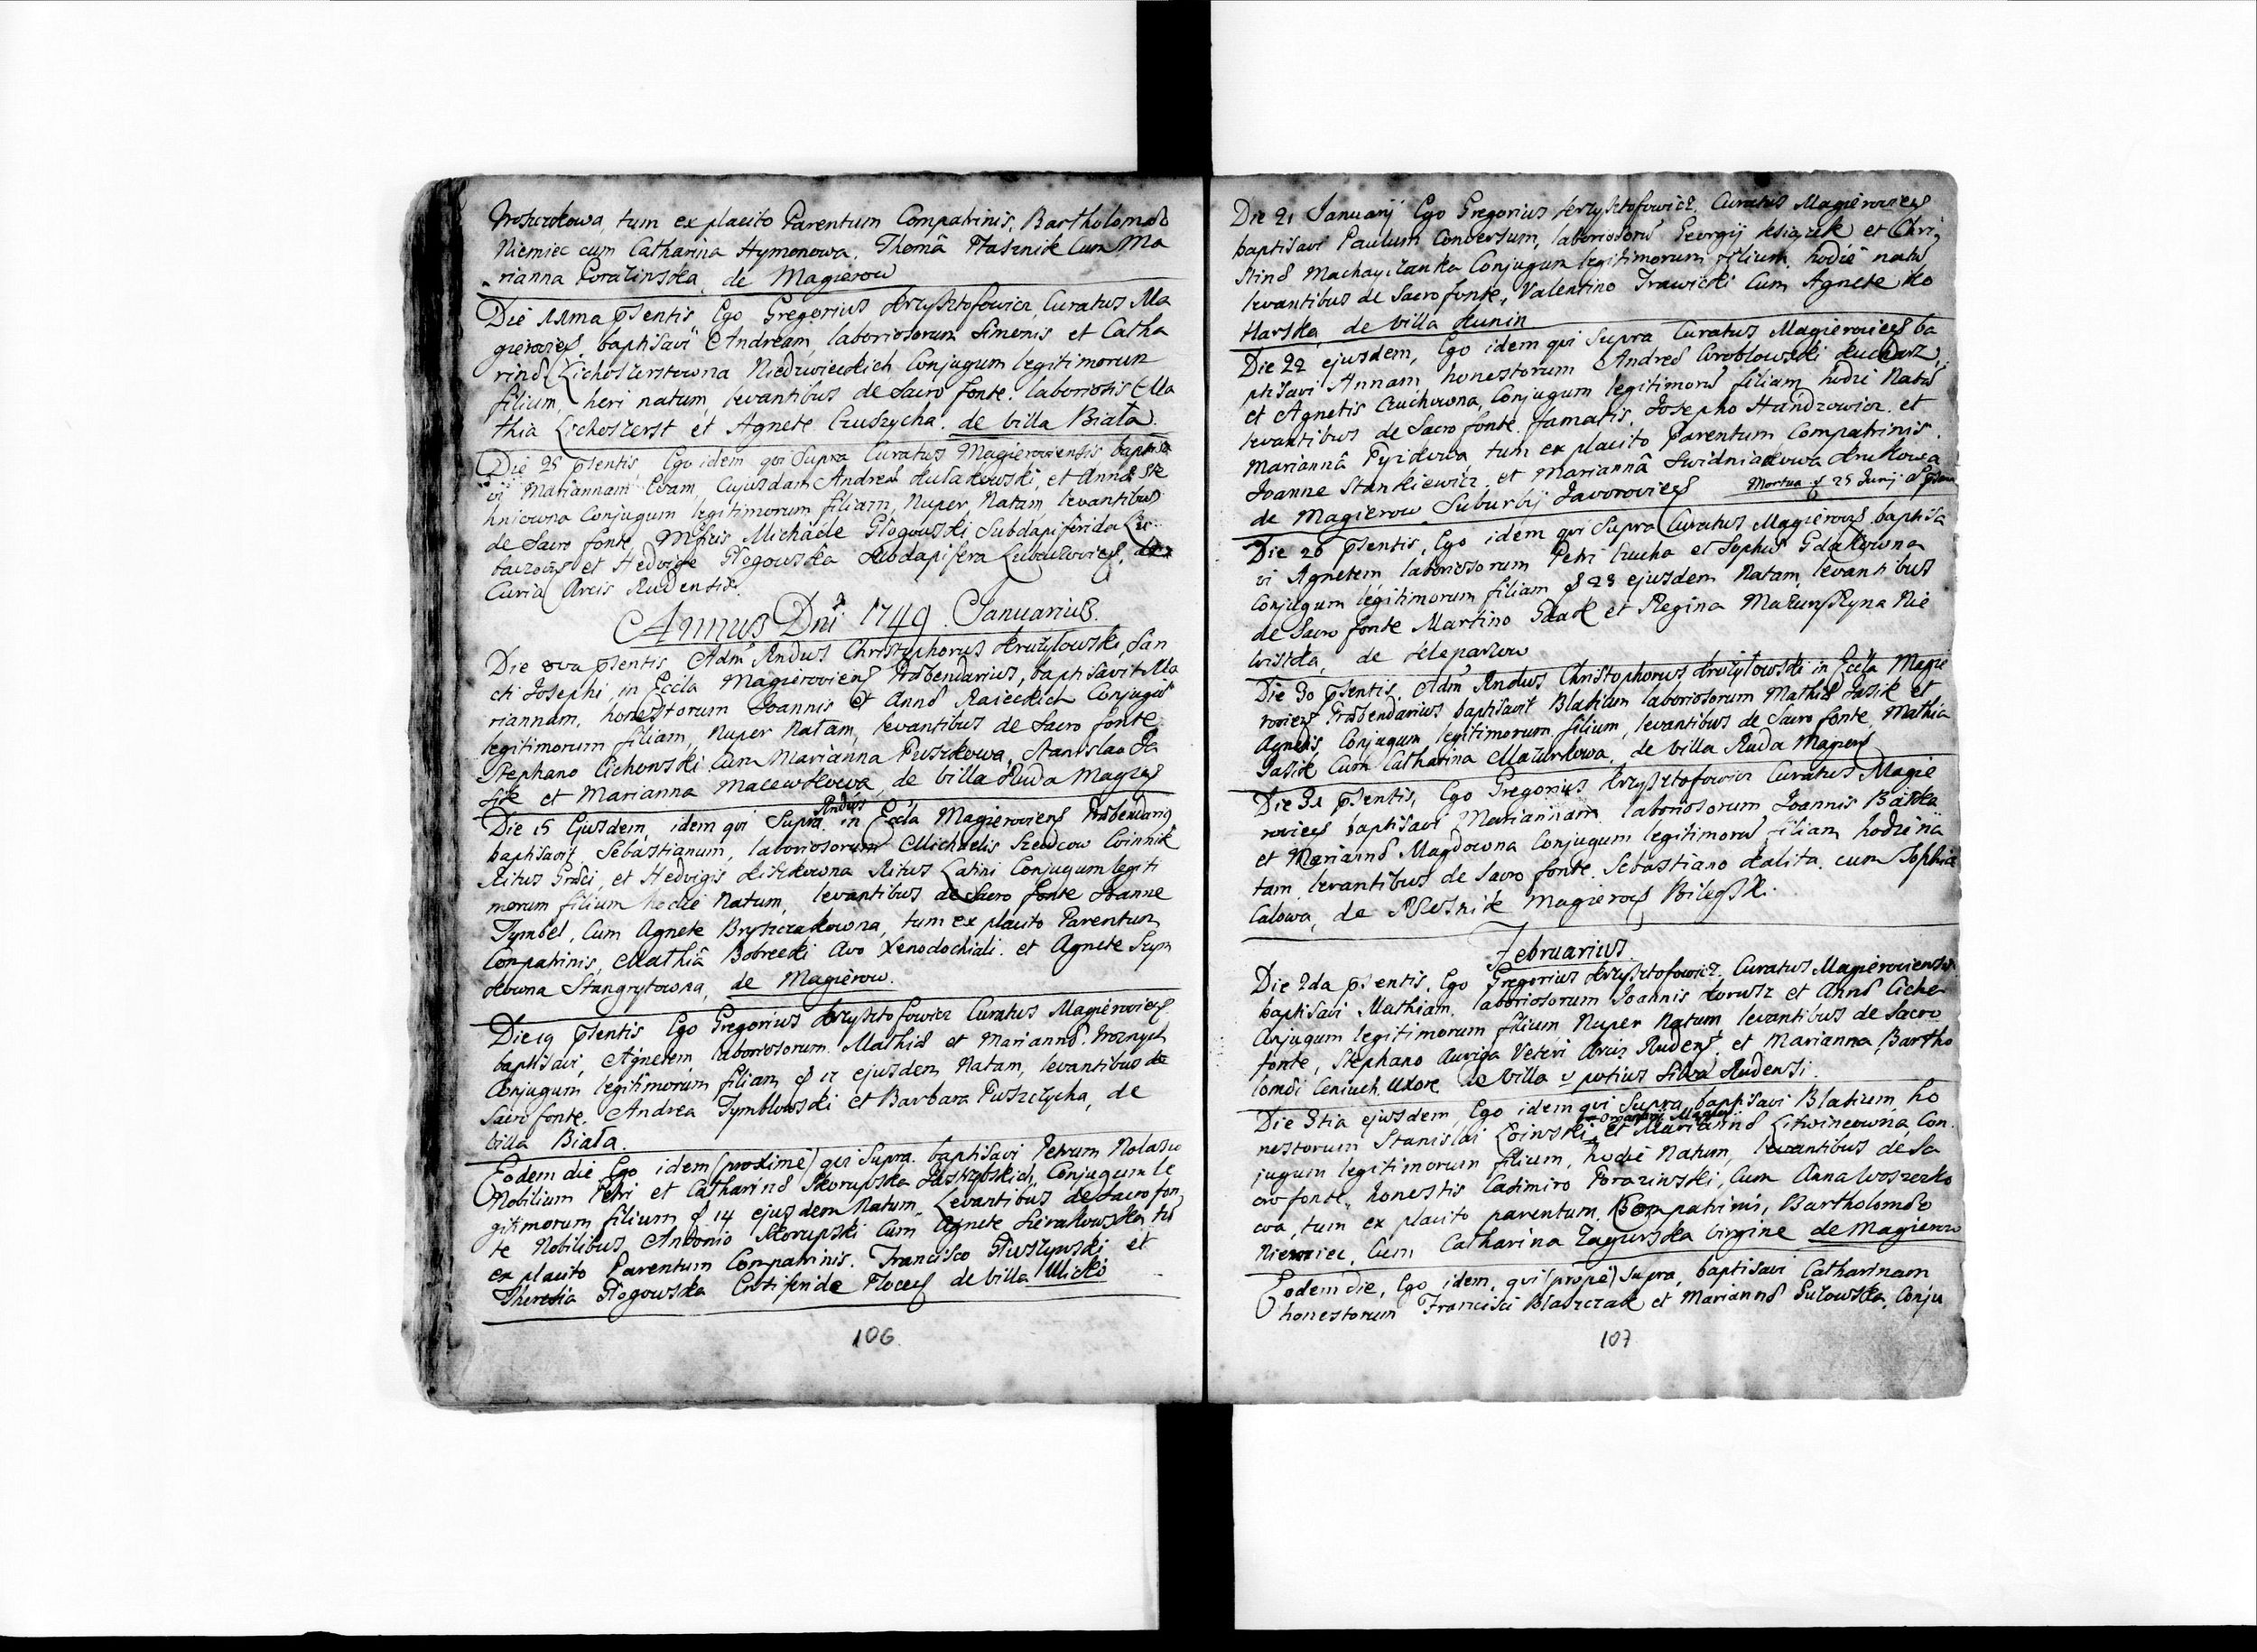 Woszczkowa, tum ex placito Parentum Compatrinis, Bartholomæo
Niemiec cum Catharina Hymonowa, Thomâ Ptasznik Cum Ma
rianna Porazinska, de Magierow
Die 22ma pñsentis Ego Gregorius Krzysztofowicz Curatus Ma
gierovieñs. baptisavi Andream, laboriosorum Simonis et Catha
rinæ Lichoszerstowna Niedzwieckich Conjugum legitimorum
filium, heri natum, levantibus de Sacro fonte. laboriosis Ma
thia Lichoszerst et Agnete Czuszycha. de villa Biała.
Die 25 pñsentis Ego idem qui Supra Curatus Magieroviensis baptisa
vi Mariannam Evam, Cujusdam Andreæ Kułakowski, et Annæ
hniowna Conjugum legitimorum filiam, Nuper Natam, levantibus
de Sacro fonte, Michaele Głogowski Subdapiferida
et Hedvige Głogowska Subdapifera
Curia Arcis Rudensis.
Annus Dñi 1749. Januarius.
Die 8va pñsentis Adm Rñdus Christophorus Krużyłowski, San
cti Josephi, in Eccla Magierovieñs Præbendarius, baptisavit Ma
riannam, honestorum Joannis et Annæ Raieckich Conjugum
legitimorum filiam, Nuper Natam, levantibus de Sacro fonte
Stephano Cichonski Cum Marianna Puszkowa, Stanislao Ja
sik et Marianna Macewkowa, de villa Ruda Magieñs
Die 15 Ejusdem, idem qui Supra Rñdus in Eccla Magierovieñs Præbendarius
baptisavit Sebastianum, laboriosorum Michaelis Szewcow Woinnik
Ritus Græci, et Hedvigis Ritus Latini Conjugum legiti
morum filium hodie Natum, levantibus de Sacro fonte Joanne
Tymbel, Cum Agnete Bryszczakowna, tum ex placito Parentum
Compatrinis, Mathiâ Bobrecki Avo Xenodochiali. et Agnete Szym
kowna Stangrytowna, de Magierow.
Die 19 pñsentis Ego Gregorius Krzysztofowicz Curatus Magierovieñs
baptisavi, Agnetem, laboriosorum Mathiæ et Mariannæ Woznych
Conjugum legitimorum filiam d 17 ejusdem Natam, levantibus de
Sacro fonte. Andrea Tymblowski et Barbara Puszczycha, de
villa Biała.
Eodem die Ego idem (proxime) qui Supra. baptisavi Petrum Nolasco
Nobilium Petri et Catharinæ Skorupska Jastrzębskich, Conjugum le
gitimorum filium d. 14 ejusdem Natum. Levantibus de Sacro fon
te Nobilibus Antonio Skorupski Cum Agnete Sierakowska, tũ
ex placito Parentum Compatrinis. Francisco Głuszynski et
Theresia Głogowska Ensiferide Płoceñs de villa Ulicko
106.
Die 21 Januarij Ego Gregorius Krzysztofowicz Curatus Magierovieñs
baptisavi Paulum Conversum, laboriosorũ Georgij Książek et Chri
stinæ Machayczanka Conjugum legitimorum filium, hodie natũ
levantibus de Sacro fonte, Valentino Trawicki Cum Agnete Ko
tlarska, de villa Kunin
Die 22 ejusdem, Ego idem qui Supra Curatus Magierovieñs ba
ptisavi Annam, honestorum Andreæ Groblowski Kucharz,
et Agnetis Czuchowna, Conjugum legitimorũ filiam, hodie Natũ
levantibus de Sacro fonte. famatis. Josepho Handzowicz. et
Mariannâ Pyzikowa, tum ex placito Parentum, Compatrinis.
Joanne Stankiewicz. et Mariannâ Swidniakowa Krukowa
de Magierow Suburbij Javorovieñs Mortua d 25 Junij
Die 26 pñsentis, Ego idem qui Supra Curatus Magierovieñs baptisa
vi Agnetem laboriosorum Petri Czucha et Sophiæ Gdakowna
Conjugum legitimorum filiam d 23 ejusdem Natam, levantibus
de Sacro fonte Martino Gdak et Regina Mazunszyna Nie
wistka, de Kleparzow
Die 30 pñsentis, Adm Rñdus Christophorus Krużyłowski in Eccla Magie
rovieñs Præbendarius baptisavit Blasium laboriosorum Mathiæ Jasik et
Agnetis, Conjugum legitimorum, filium, levantibus de Sacro fonte, Mathia
Jasik Cum Catharina Mazurkowa, de villa Ruda Magieñs
Die 31 pñsentis, Ego Gregorius Krzysztofowicz Curatus Magie
rovieñs baptisavi Mariannam laboriosorum Joannis Baska
et Mariannæ Magdowna Conjugum legitimorũ filiam hodie na
tam, levantibus de Sacro fonte. Sebastiano Kalita. cum Sophia
Calowa, de Magierovieñs
Februarius.
Die 2da pñsentis, Ego Gregorius Krzysztofowicz. Curatus Magieroviensis
baptisavi Mathiam, laboriosorum Joannis Korusz et Annæ Cicha
Conjugum legitimorum filium Nuper Natum, levantibus de Sacro
fonte, Stephano Auriga Veteri Arcis Rudeñs. et Marianna, Bartho
lomæi Ceniuch, Uxore de villa v potius Silva Rudensi.
Die 3tia ejusdem, Ego idem qui Supra baptisavi Blasium, ho
nestorum Stanislai Łoinski Organarij Magieñs et Mariannæ Litwincowna, Con
jugum legitimorum filium, hodie Natum, levantibus de Sa
cro fonte, honestis Casimiro Porazinski, Cum Anna Woszczko
wa, tum ex placito parentum. Compatrinis, Bartholomæo
Niemiec, Cum Catharina Zagurska Virgine de Magierow
Eodem die, Ego idem, qui (prope) Supra, baptisavi Catharinam
honestorum Francisci Błaszczak et Mariannæ Gułowska, Conju
107